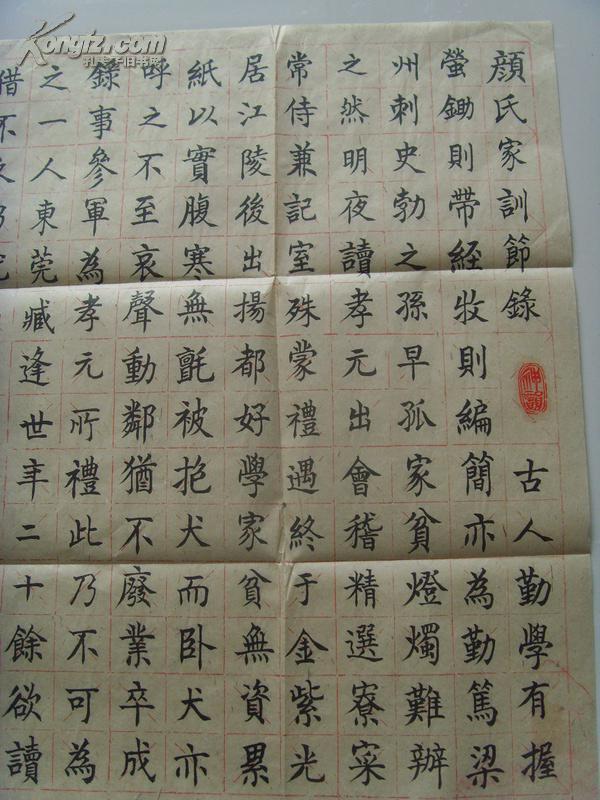 顏氏家訓節錄
古人勤學有握
螢鋤則帶經牧則編簡亦為勤篤梁
州刺史勃之孫早孤家貧燈燭難辦
之然明夜讀孝元出會稽精選寮寀
常侍兼記室殊蒙禮遇終于金紫光
居江陵後出揚都好學家貧無資累
紙以實腹寒無氈被抱犬而卧犬亦
呼之不至哀聲動鄰猶不廢業卒成
錄事參軍為孝元所禮此乃不可為
之一人東莞臧逢世年二十餘欲讀
借不
Kongfz.com
孔夫子旧书网